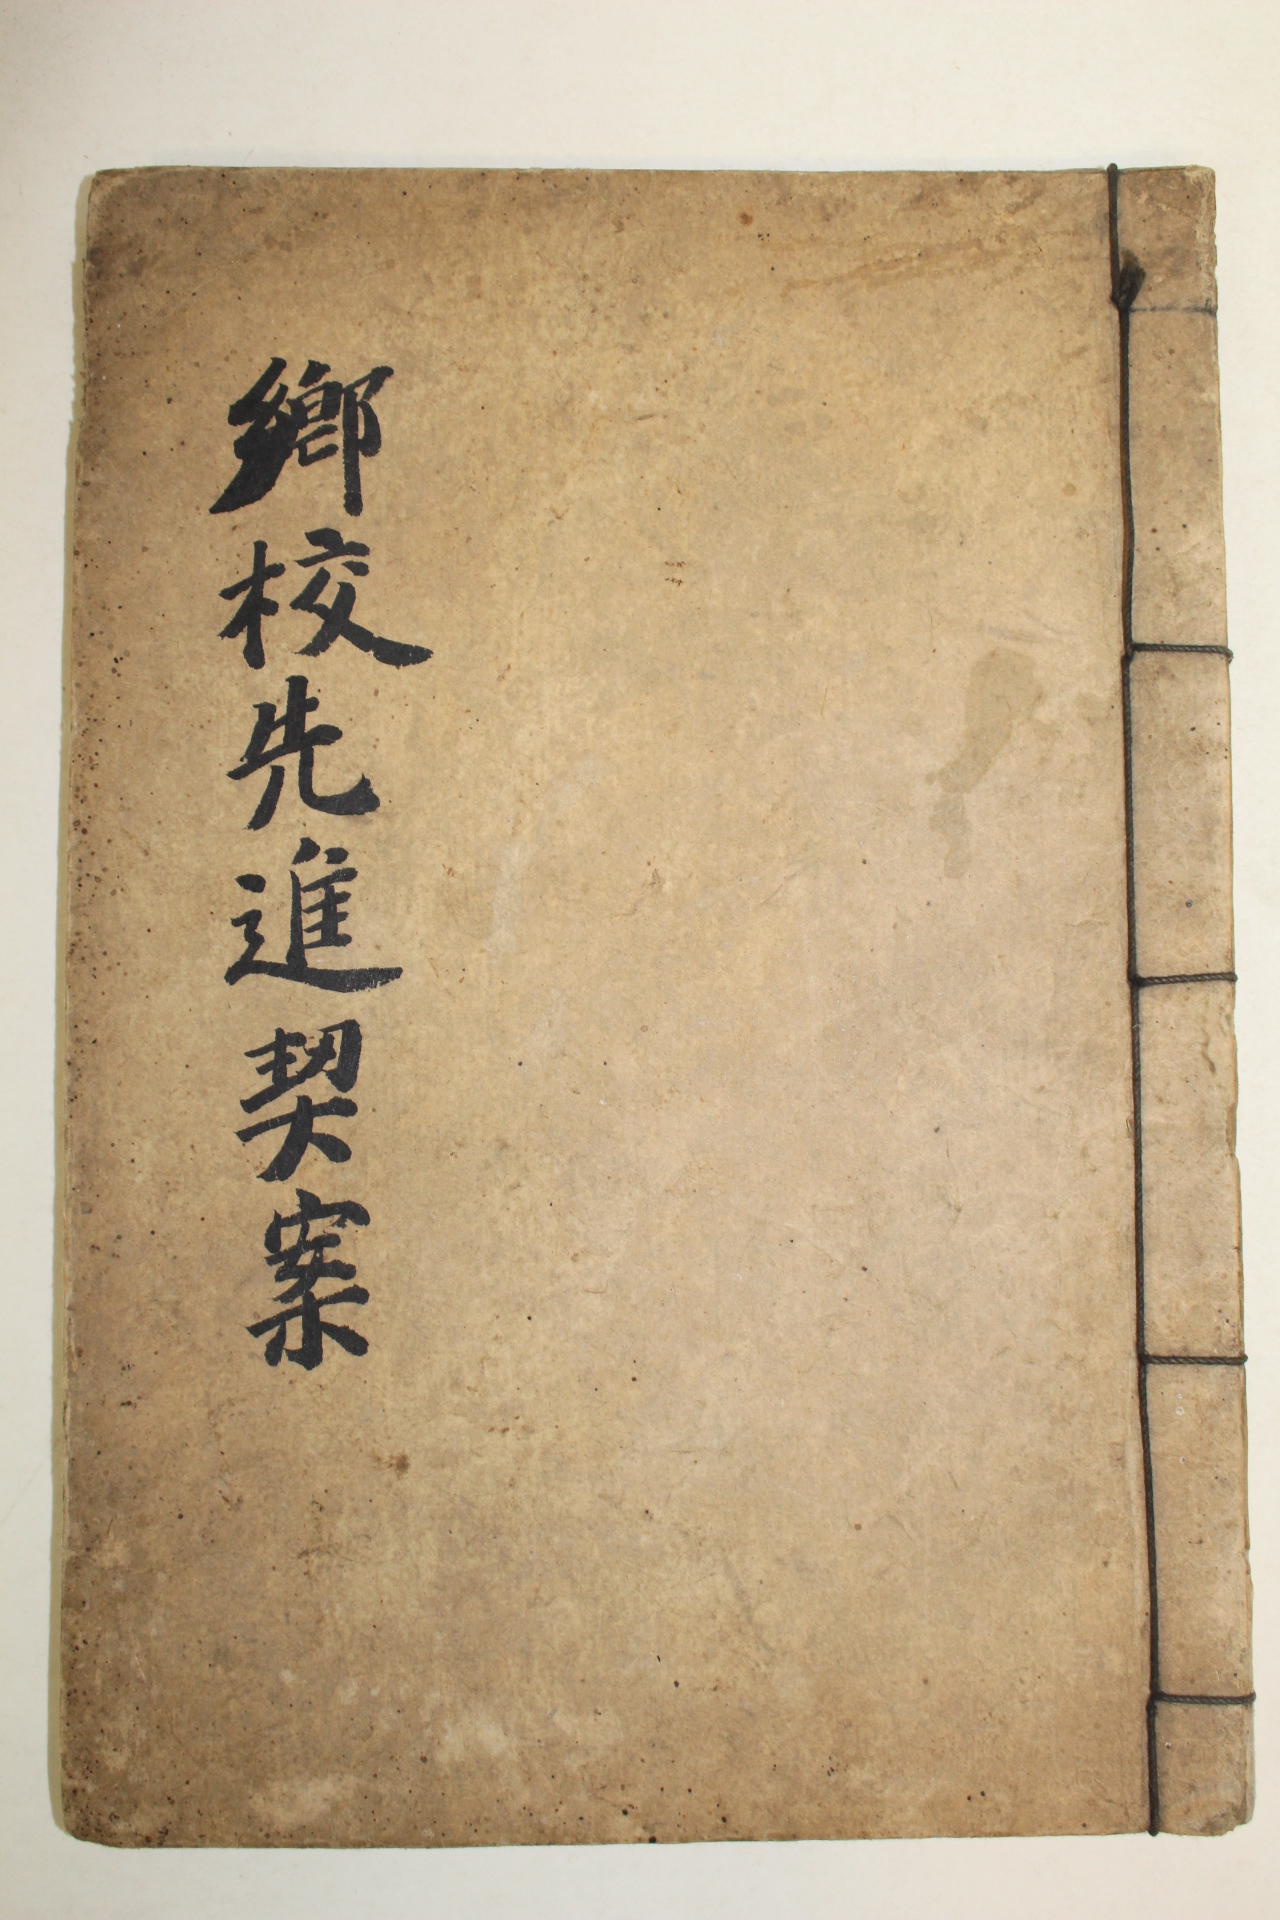 鄉校先進契案